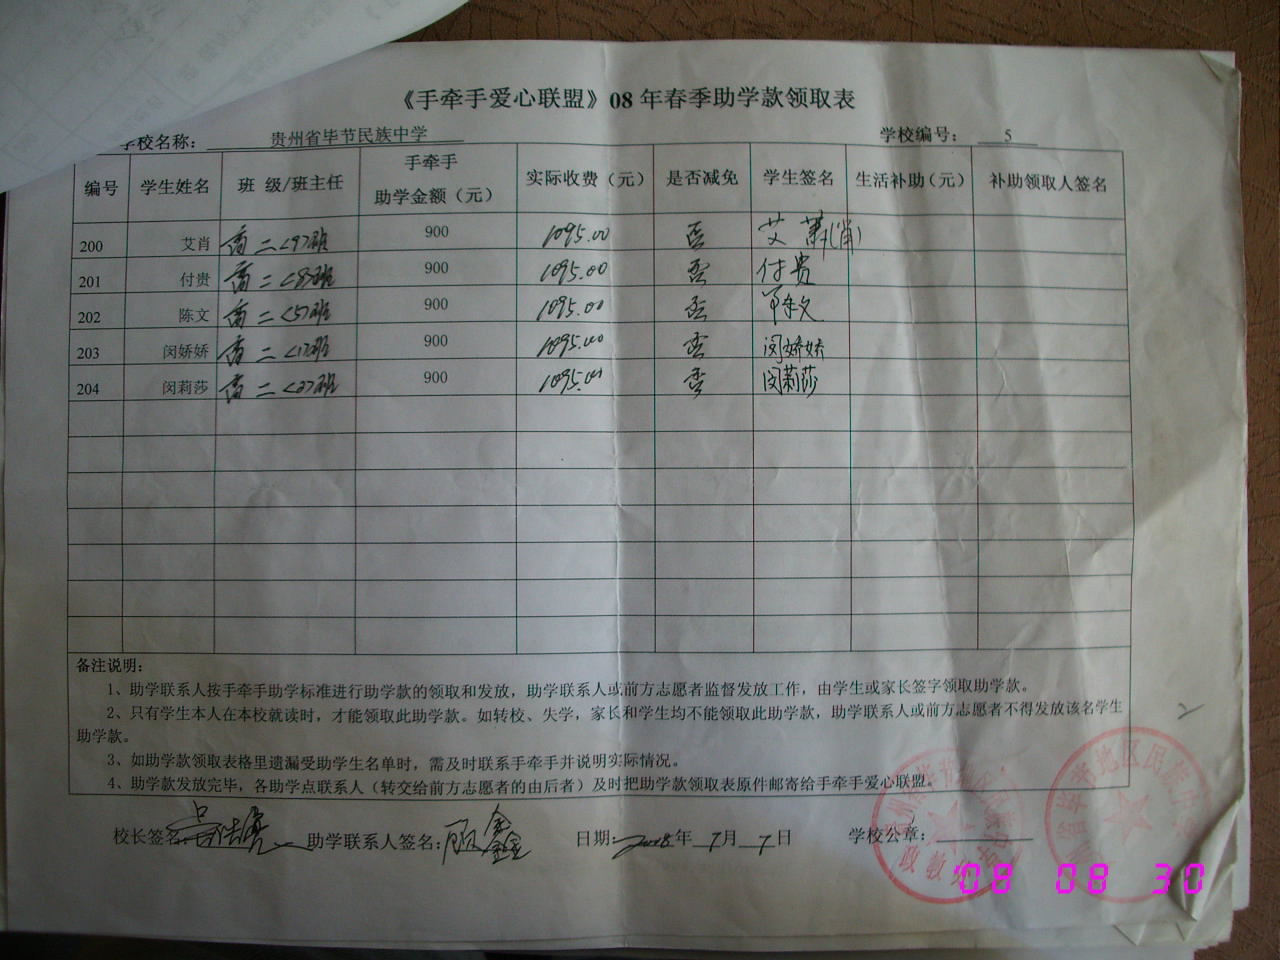 《手牵手爱心联盟》08 年春季助学款领取表
学校名称： 贵州省毕节民族中学 学校编号： 5
编号 学生姓名 班 级/班主任 手牵手助学金额（元） 实际收费（元） 是否减免 学生签名 生活补助（元） 补助领取人签名
200 艾肖 高二<9>班 900 1095.00 否 艾萧(肖)
201 付贵 高二<8>班 900 1095.00 否 付贵
202 陈文 高二<5>班 900 1095.00 否 陈文
203 闵娇娇 高二<1>班 900 1095.00 否 闵娇娇
204 闵莉莎 高二<2>班 900 1095.00 否 闵莉莎
备注说明：
1、助学联系人按手牵手助学标准进行助学款的领取和发放，助学联系人或前方志愿者监督发放工作，由学生或家长签字领取助学款。
2、只有学生本人在本校就读时，才能领取此助学款。如转校、失学，家长和学生均不能领取此助学款，助学联系人或前方志愿者不得发放该名学生
助学款。
3、如助学款领取表格里遗漏受助学生名单时，需及时联系手牵手并说明实际情况。
4、助学款发放完毕，各助学点联系人（转交给前方志愿者的由后者）及时把助学款领取表原件邮寄给手牵手爱心联盟。
校长签名： 助学联系人签名： 顾鑫 日期： 2008 年 7 月 7 日 学校公章：
政教处
08 08 30